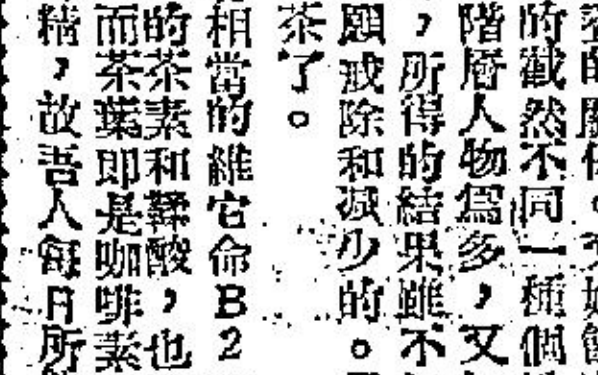 的關係。
的截然不同一種個
階層人物爲多，又
，所得的結果雖不
願戒除和减少的。
茶了。
相當的維它命B2
的茶素和鞣酸，也
而茶葉即是咖啡素
精，故吾人每日所